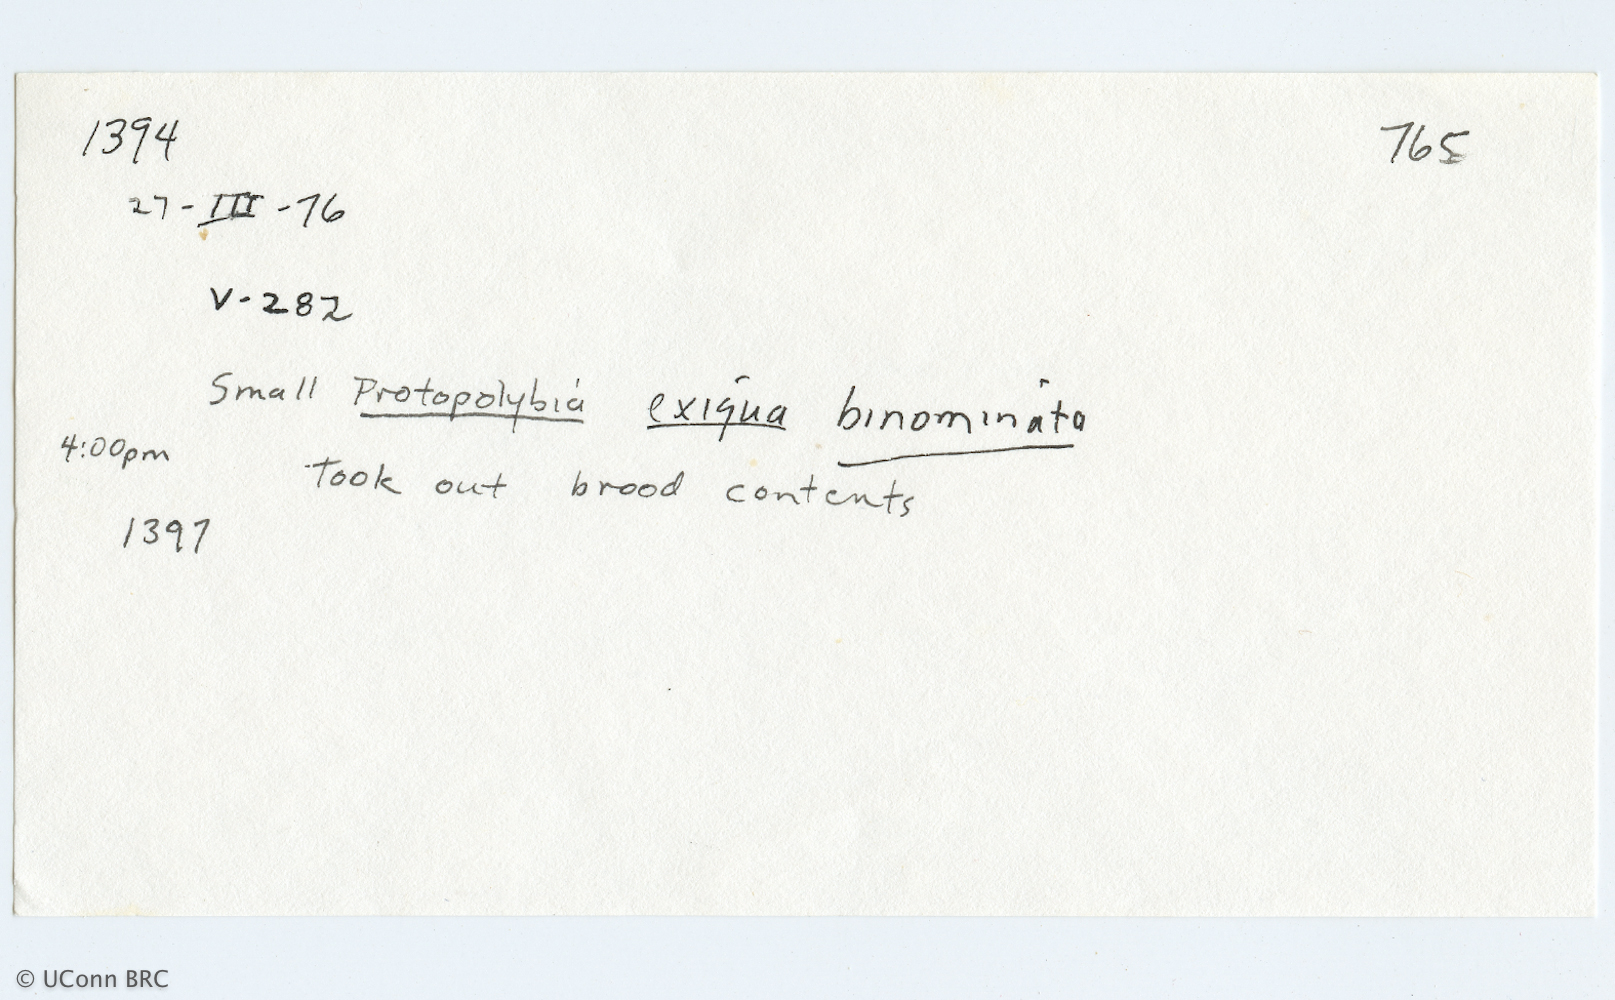 1394
765
27-III-76
V-282
Small Protopolybia exigua binominata
4:00pm
Took out brood contents
1397
© UConn BRC